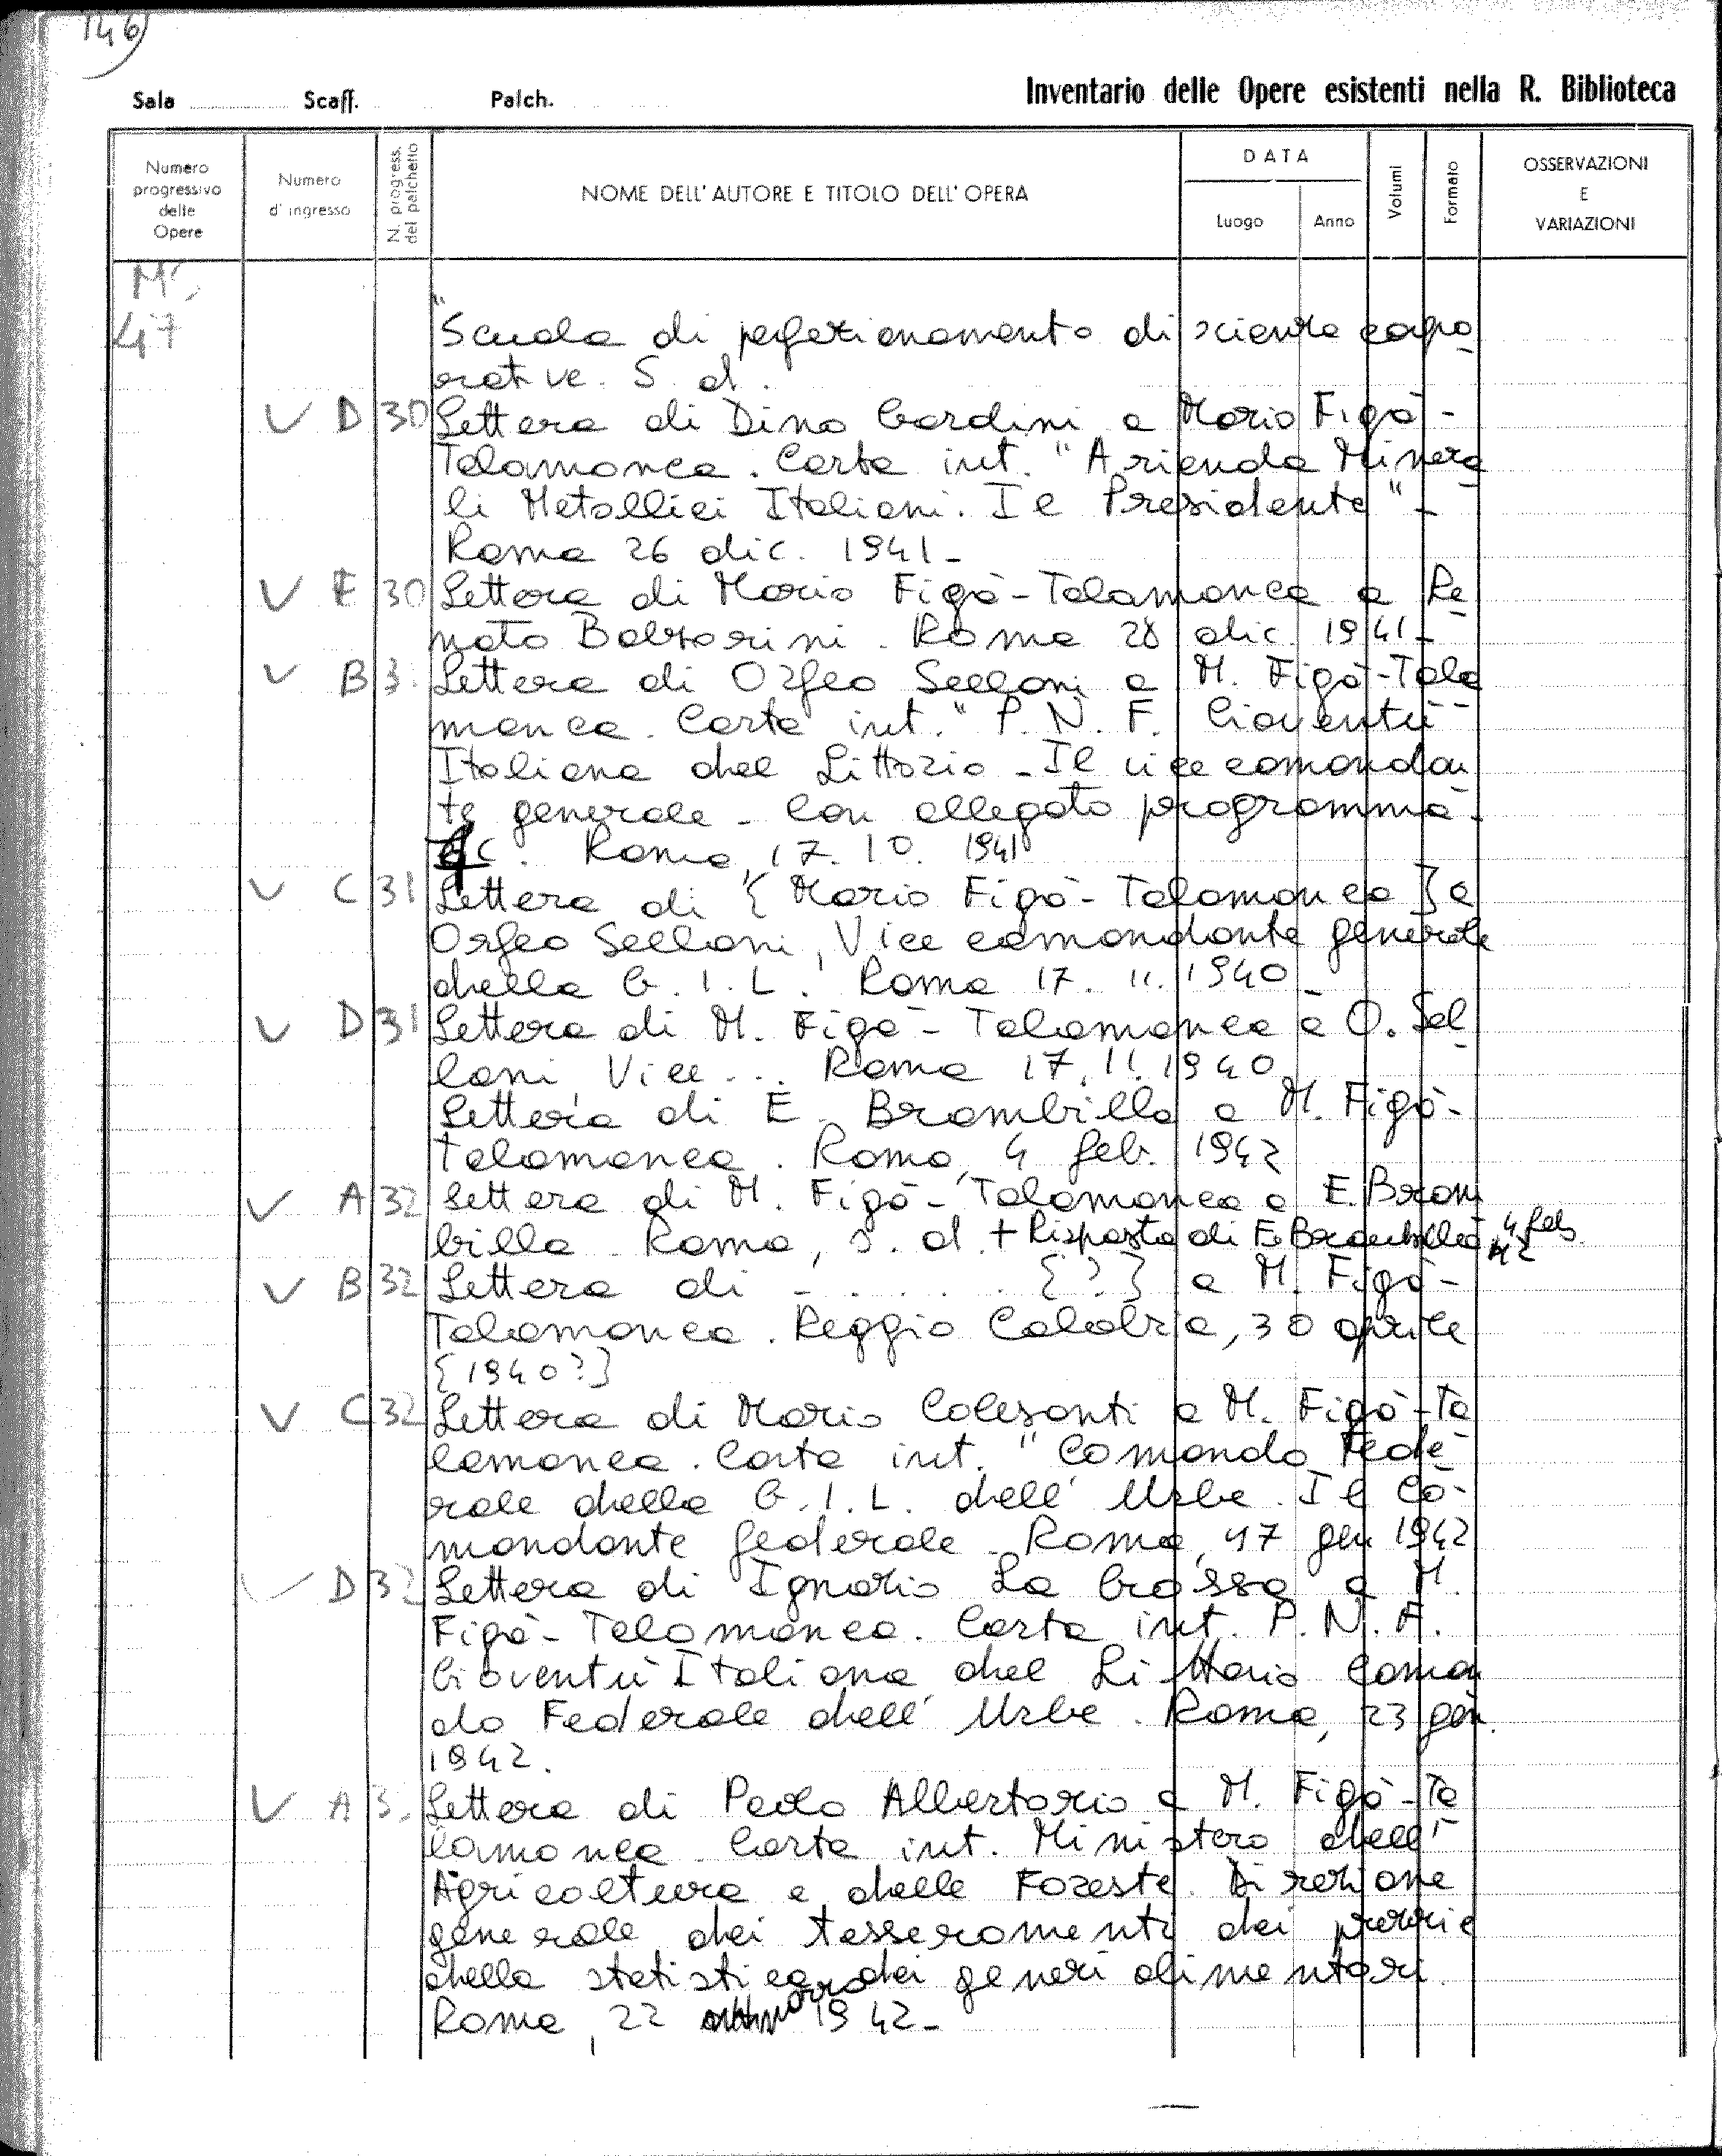 146)
Sala Scaff. Palch. Inventario delle Opere esistenti nella R. Biblioteca
Numero progressivo delle Opere
Numero d' ingresso
N. progress. del palchetto
NOME DELL' AUTORE E TITOLO DELL' OPERA
DATA
Luogo
Anno
Volumi
Formato
OSSERVAZIONI E VARIAZIONI
47
"Scuola di perfezionamento di scienze corpo
rative. S. d.
V D 30 Lettera di Dino Gardini a Mario Figà-
Talamonca. Carta int. "Azienda Minera
li Metallici Italiani. Il Presidente" -
Roma 26 dic. 1941-
V E 30 Lettera di Mario Figà-Talamonca a Re
nato Balzarini. Roma 28 dic. 1941-
V B 3 Lettera di Orfeo Sellani a M. Figà-Tala
monca. Carta int. "P. N. F. Gioventù
Italiana del Littorio - Il vice comandan
te generale - Con allegato programma.
Roma, 17. 10. 1941
V C 31 Lettera di {Mario Figà-Talamonca} a
Orfeo Sellani, Vice comandante generale
della G. I. L. Roma 17. 11. 1940
V D 31 Lettera di M. Figà-Talamonca a O. Sel
lani, Vice... Roma 17. 11. 1940
Lettera di E. Brambilla a M. Figà-
Talamonca. Roma, 4 feb. 1942
V A 32 Lettera di M. Figà-Talamonca a E. Bram
billa. Roma, s. d. + Risposta di E. Brambilla 4 feb. 42
V B 32 Lettera di - . . . . . {?} a M. Figà-
Talamonca. Reggio Calabria, 30 aprile
{1940?}
V C 32 Lettera di Mario Colesanti a M. Figà-Ta
lamonca. Carta int. "Comando Fede
rale della G. I. L. dell' Urbe. Il Co-
mandante federale - Roma, 17 gen 1942
V D 32 Lettera di Ignazio La Grossa a M.
Figà-Talamonca. Carta int. P. N. F.
Gioventù Italiana del Littorio Coman
do Federale dell' Urbe. Roma, 23 gen.
1942.
V A 3 Lettera di Paolo Albertario a M. Figà-Ta
lamonca. Carta int. Ministero dell'
Agricoltura e delle Foreste. Direzione
generale dei tesseramenti dei prezzi e
della statistica dei generi alimentari.
Roma, 22 1942-